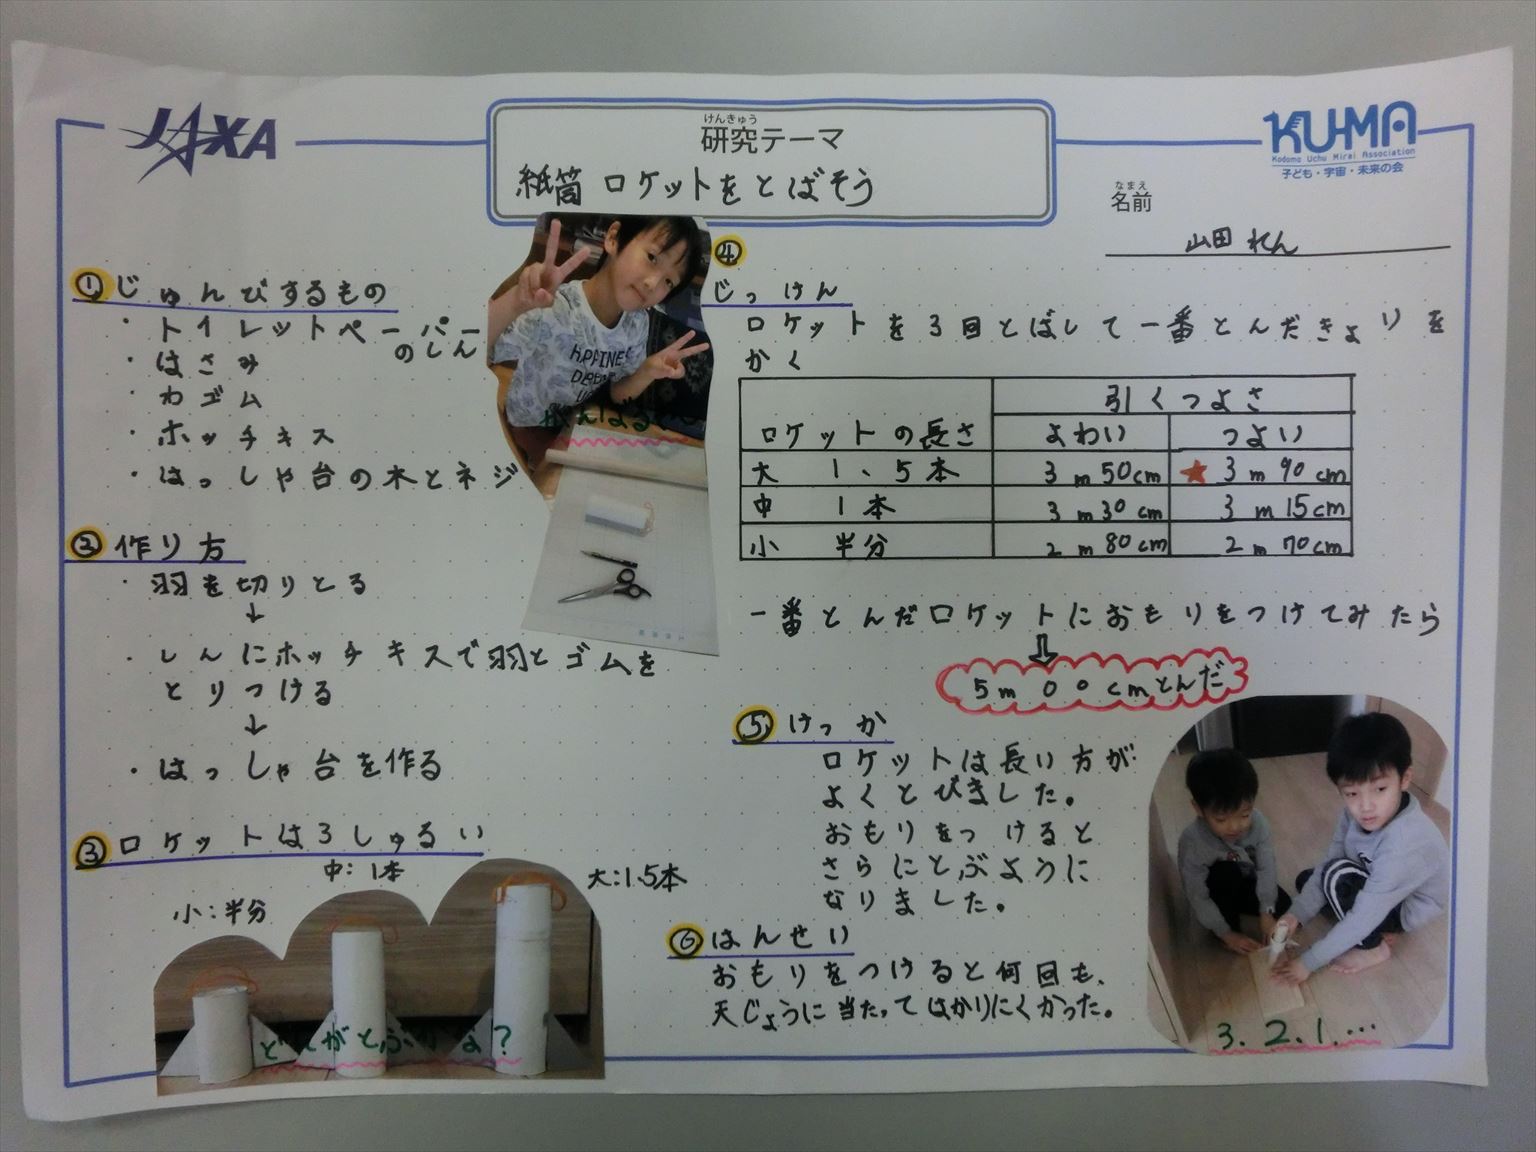 JAXA
けんきゅう
研究テーマ
紙筒ロケットをとばそう
KU-MA
Kodomo Uchu Mirai Association
子ども・宇宙・未来の会
なまえ
名前
山田 れん
①じゅんびするもの
・トイレットペーパー
のしん
・はさみ
・わゴム
・ホッチキス
・はっしゃ台の木とネジ
②作り方
・羽を切りとる
↓
・しんにホッチキスで羽とゴムを
とりつける
↓
・はっしゃ台を作る
③ロケットは3しゅるい
小:半分
中:1本
大:1.5本
どれがとぶかな?
HAPPINE
がんばるぞ
④
じっけん
ロケットを3回とばして一番とんだきょりを
かく
引くつよさ
ロケットの長さ よわい つよい
大 1、5本 3m50cm ★3m90cm
中 1本 3m30cm 3m15cm
小 半分 2m80cm 2m70cm
一番とんだロケットにおもりをつけてみたら
⇩
5m00cmとんだ
⑤けっか
ロケットは長い方が
よくとびました。
おもりをつけると
さらにとぶように
なりました。
⑥はんせい
おもりをつけると何回も、
天じょうに当たってはかりにくかった。
3.2.1.…